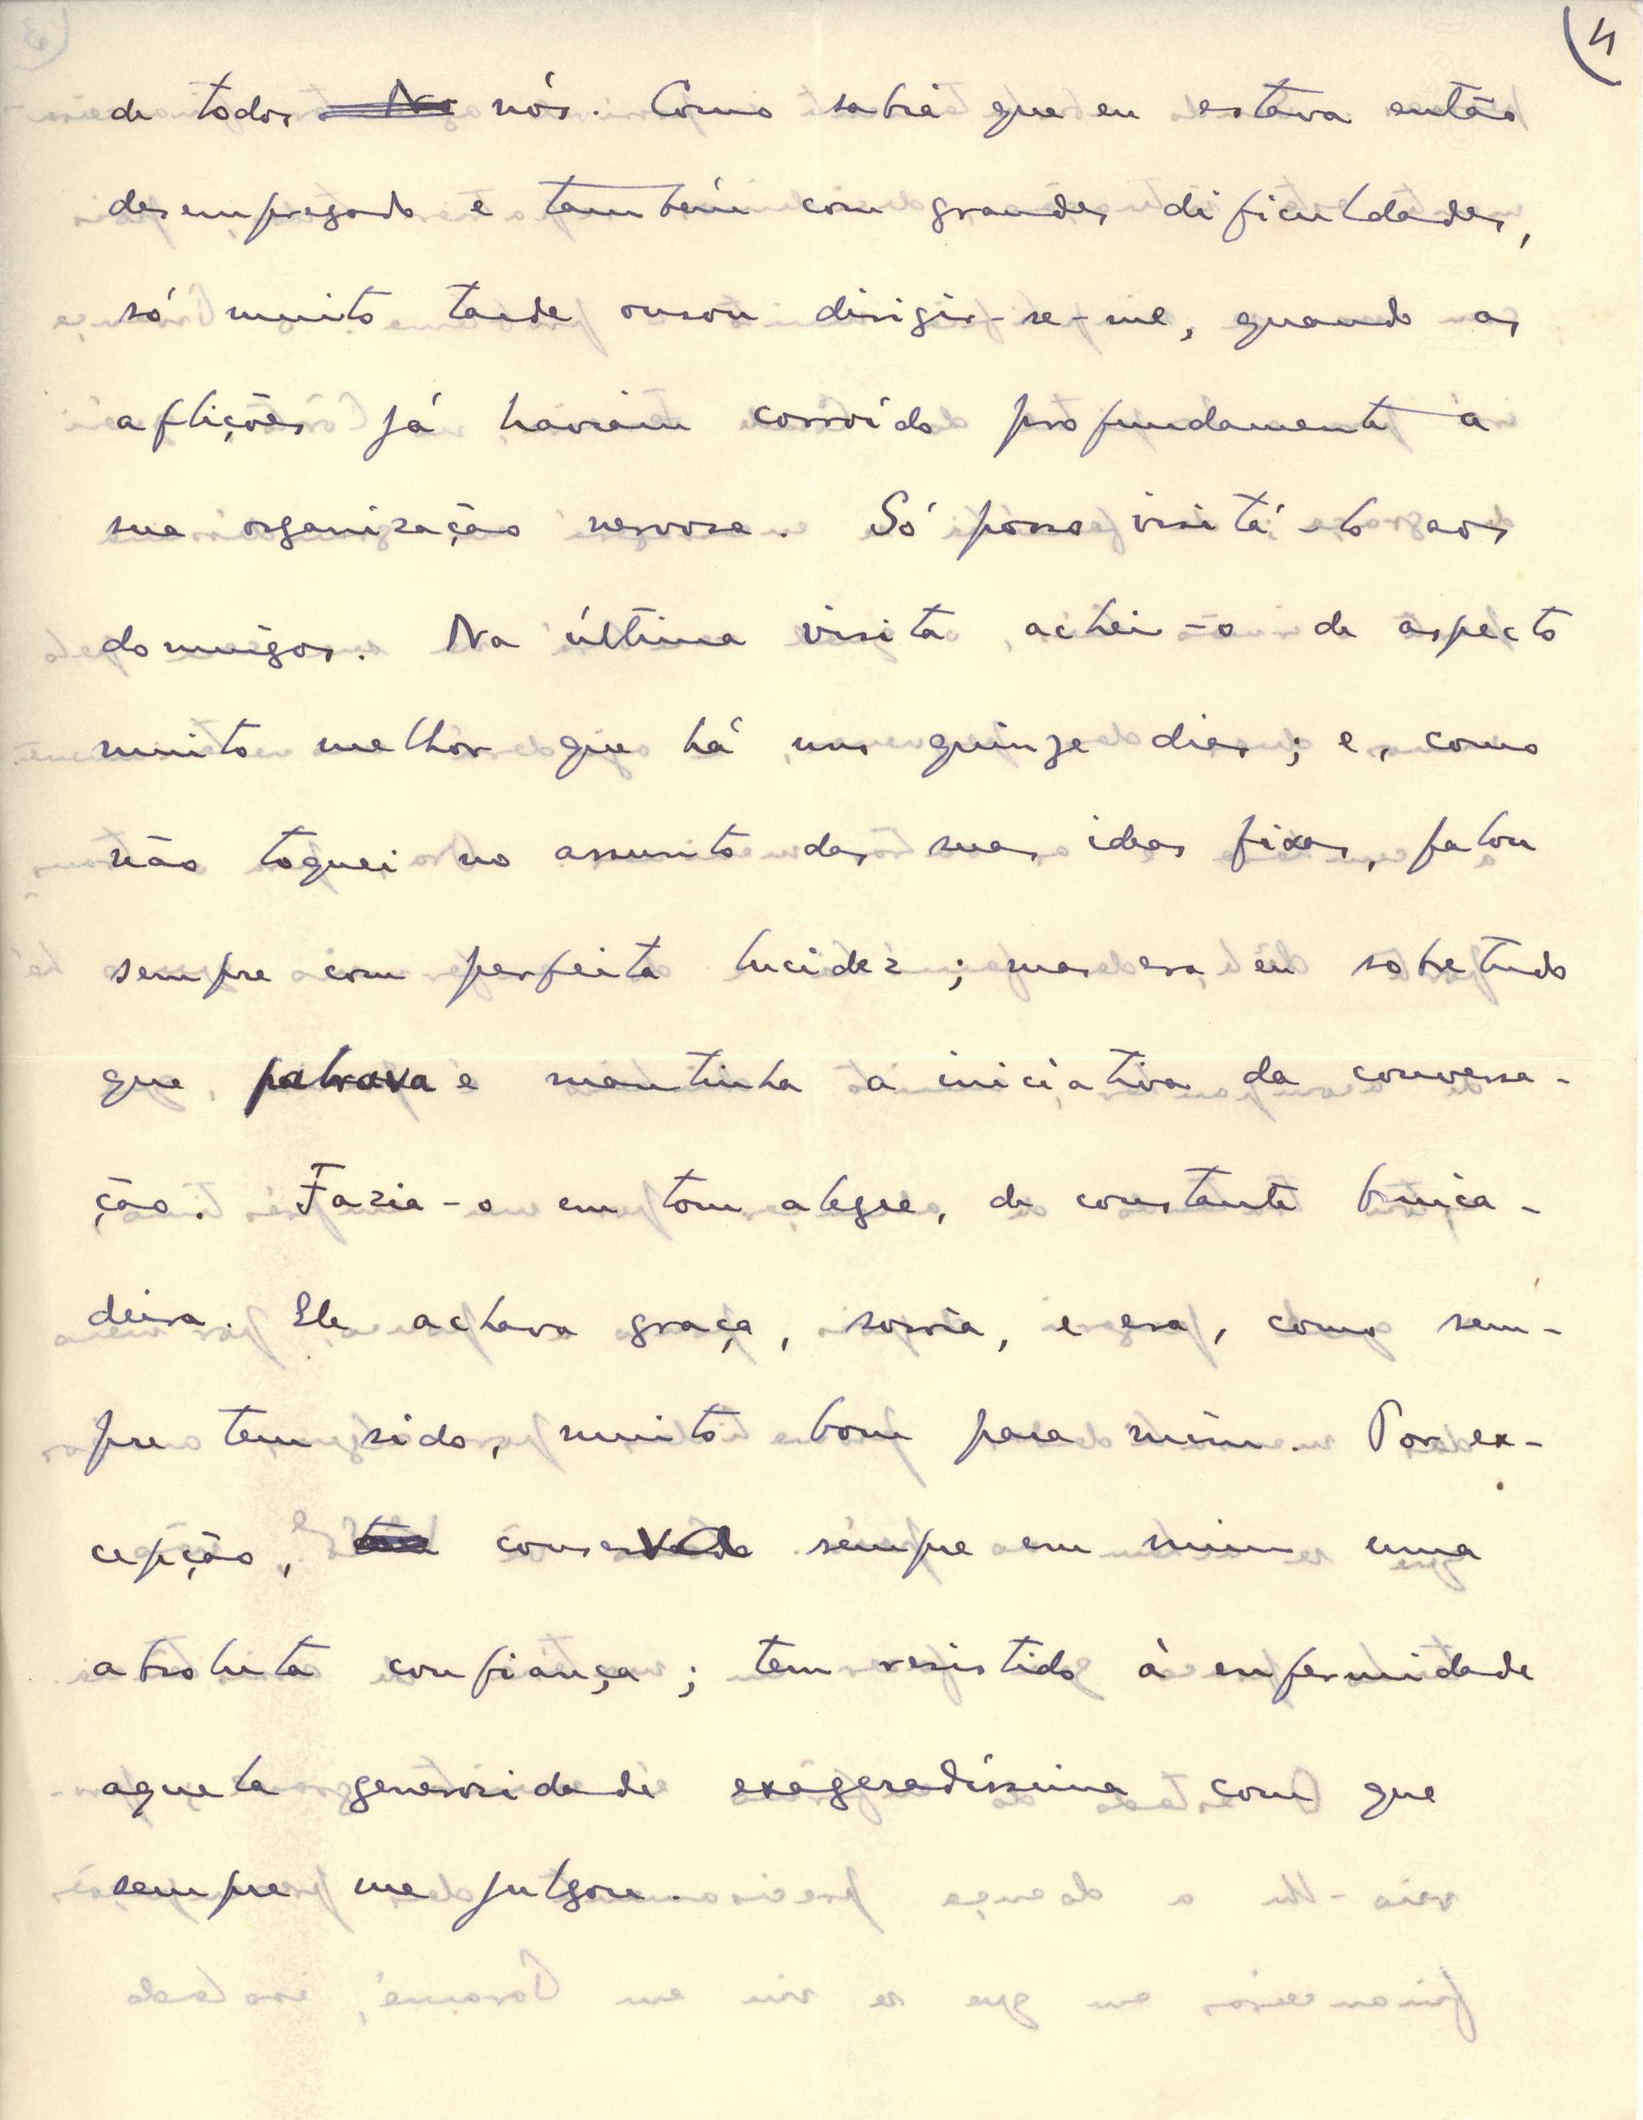 4
de todos nós. Como sabia que eu estava então
desempregado e também com grandes dificuldades,
só muito tarde ousou dirigir-se-me, quando as
aflições já haviam corroído profundamente a
sua organização nervosa. Só posso visitá-lo aos
domingos. Na última visita, achei-o de aspecto
muito melhor que há uns quinze dias; e, como
não toquei no assunto das suas ideas fixas, falou
sempre com perfeita lucidez; mas era eu sobretudo
que palrava e mantinha a iniciativa da conversa-
ção. Fazia-o em tom alegre, de constante brinca-
deira. Ele achava graça, sorria, e era, como sem-
pre tem sido, muito bom para mim. Por ex-
cepção, sempre em mim uma
absoluta confiança; tem resistido à enfermidade
aquela generosidade exageradíssima com que
sempre me julgou.